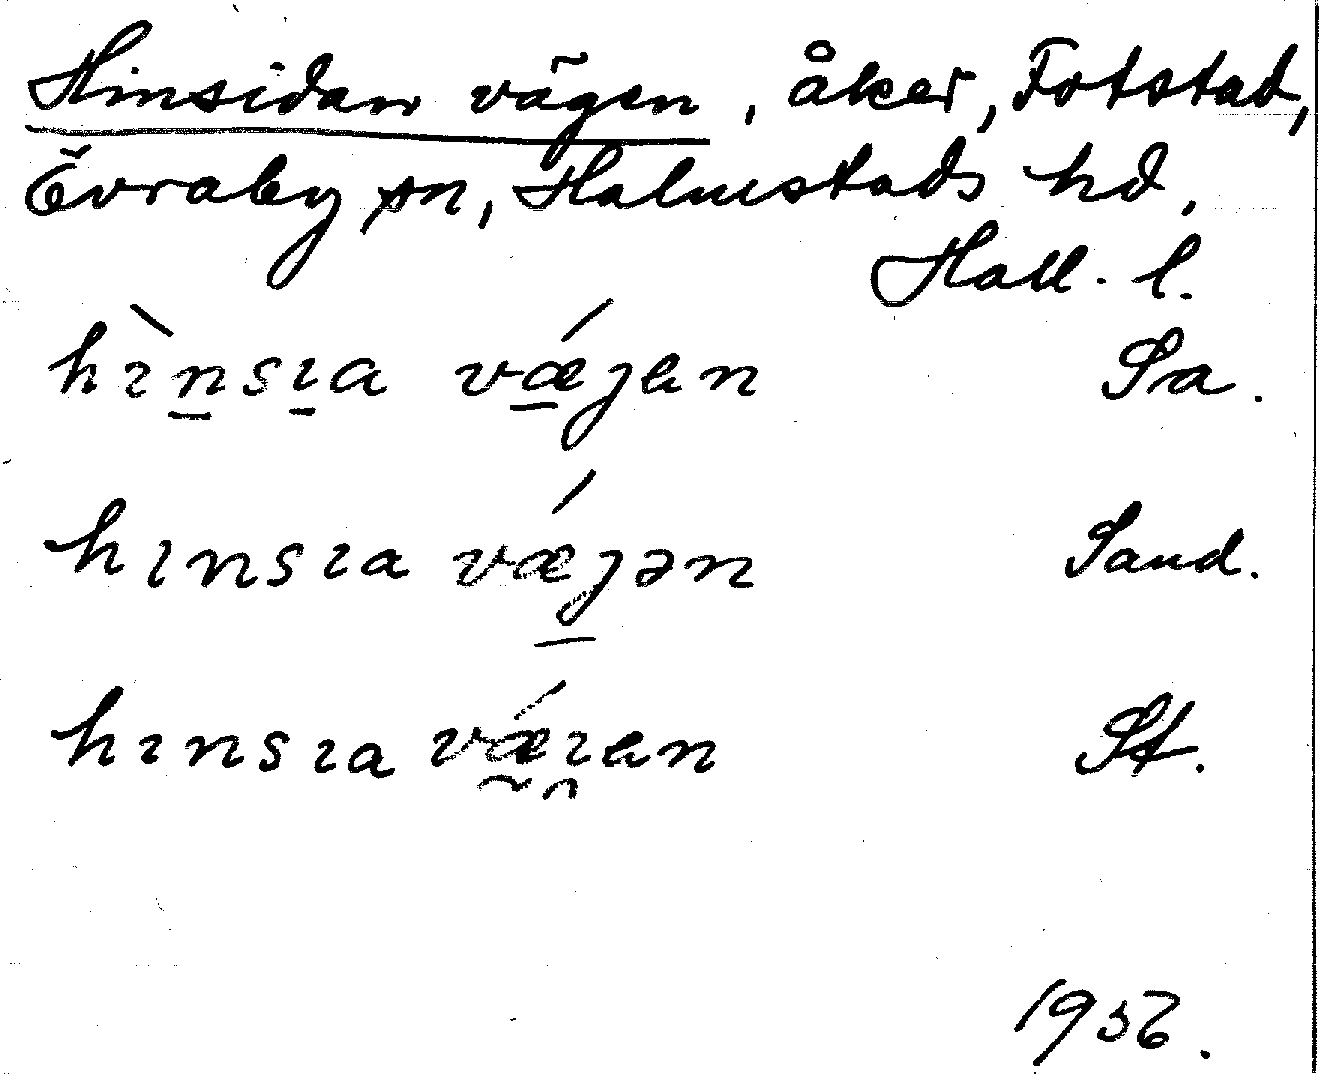 Hinsidan vägen, åker, Fotstad,
Övraby sn, Halmstads hd,
Hall. l.
hìnsıa vǽjen Sa.
hınsıa vǽjən Sand.
hınsıa vǽıen St.
1956.